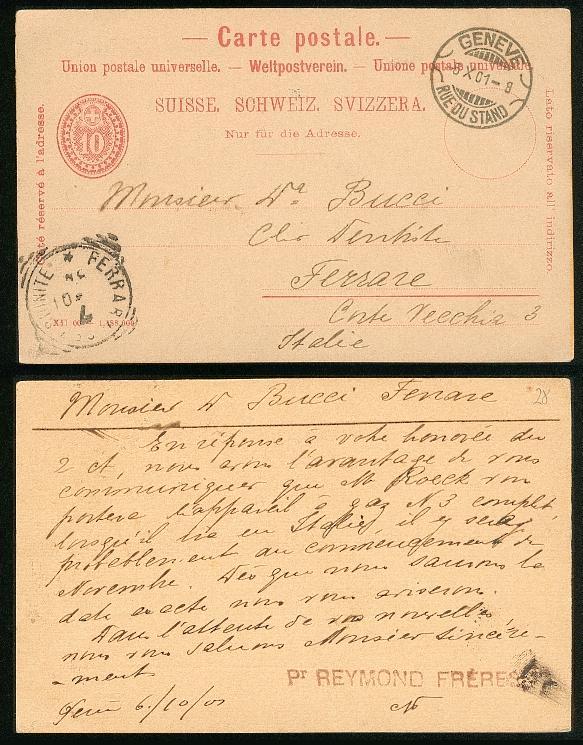 — Carte postale. —
Union postale universelle. — Weltpostverein. — Unione postale universale
SUISSE. SCHWEIZ. SVIZZERA.
Nur für die Adresse.
Côté réservé à l'adresse.
Lato riservato all'indirizzo.
10
GENEVE
X.01-8
RUE DU STAND
Monsieur Dr Bucci
Chir Dentiste
Ferrare
Corte Vecchia 3
Italie
FERRARA
Monsieur Dr Bucci Ferrare
28
En réponse à votre honorée du
2 ct, nous avons l'avantage de vous
communiquer que M. Roeck vous
portera l'appareil à gaz N 3 complet,
lorsqu'il ira en Italie, il y sera
probablement au commencement de
Novembre. Dès que nous saurons la
date exacte nous vous aviserons.
Dans l'attente de vos nouvelles
nous vous saluons Monsieur sincère-
-ment
Pr REYMOND FRÈRES
6/10/01